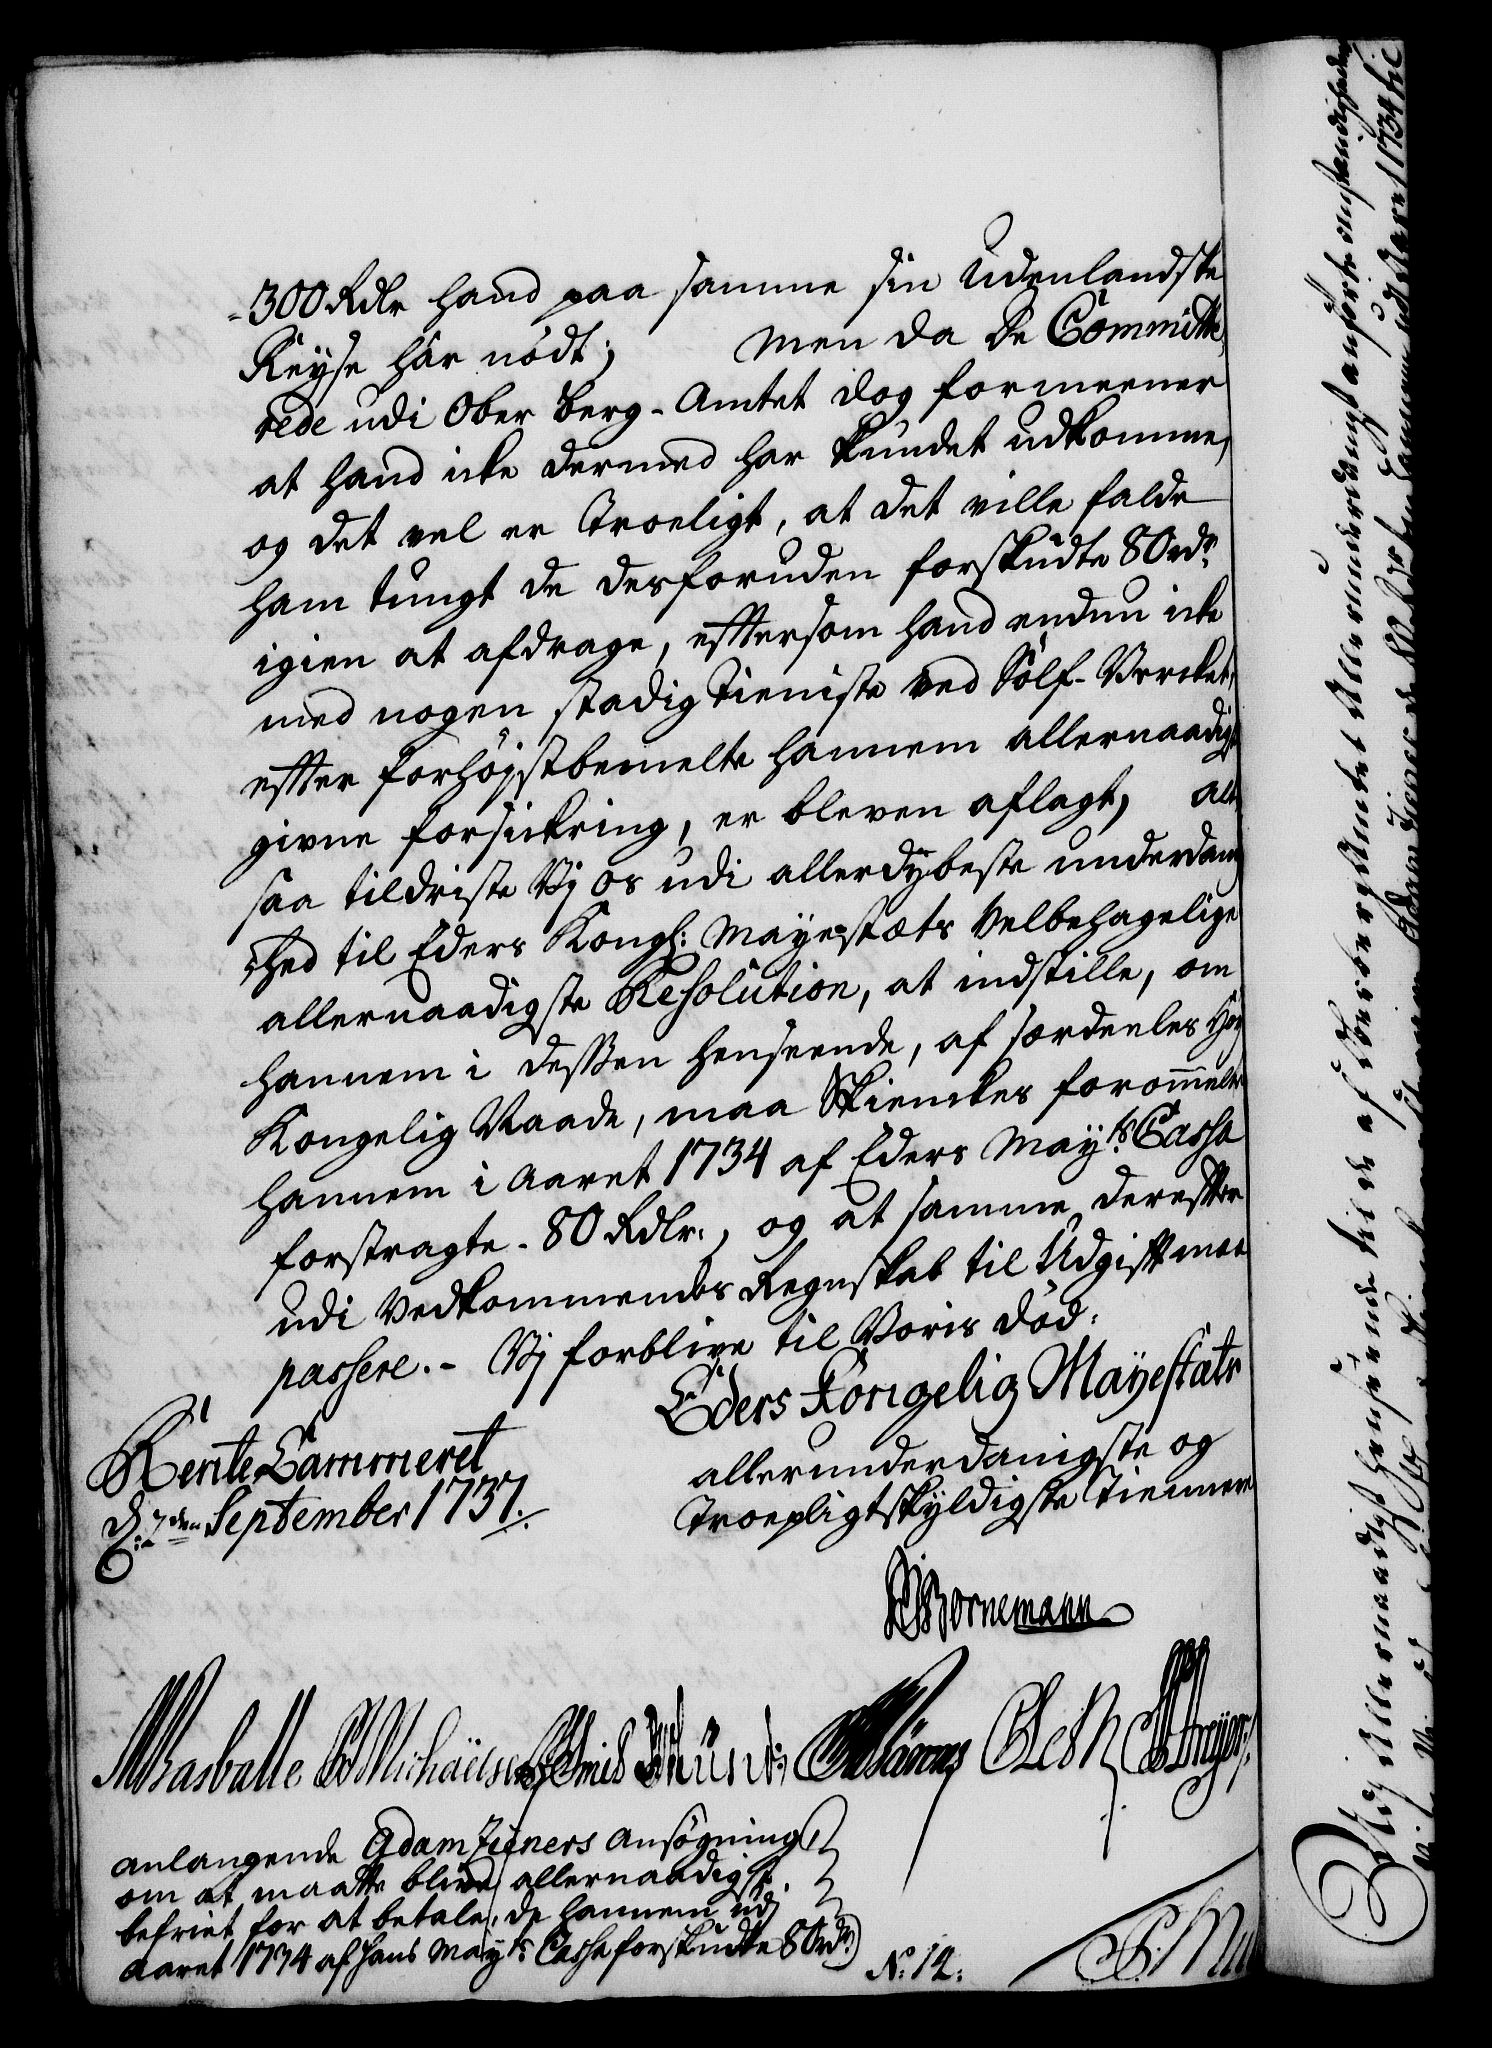 -300 Rdlr hand paa samme sin Udenlandske
Reyse har nödt; Men da De Committe,
rede udi Ober Berg-Amtet dog formeener
at hand icke dermed har kundet udkomme,
og det vel er Troeligt, at det ville falde
ham tungt de desforuden forskudte 80 rdr
igien at afdrage, efftersom hand endnu icke
med nogen stadig Tieniste ved Sölf-Vercket,
effter forhöystbemelte hannem allernaadigst
givne forsickring, er bleven aflagt, alt,
saa tildriste Vj os udi allerdybeste underdanig
hed til Eders Kongl: Mayestæts Velbehagelige
allernaadigste Resolution, at indstille, om
hannem i dessen henseende, af særdeeles Höy
Kongelig Naade, maa Skienckes forommelte
hannem i Aaret 1734 af Eders Mayts Cassa
forstragte - 80 Rdlr., og at samme dereffter
udi Vedkommendes Regnskab til Udgifft maa
passere. - Vj forblive til Voris död:
Eders Kongelig Mayestäts
allerunderdanigste og
Troepligtskyldigste Tiennere
Rente Cammeret
d: 7den September 1737.
Bornemann
anlangende Adam Ziener's Ansögning,
om at maatte blive allernaadigst
befriet for at betale, de hannem udj
Aaret 1734 af Hans Mayts Cassa forskudte 80 rdr)
No: 12:
Allernaadigst henseende til de af Ober bergAmtet Allerunderdanigst anförte omstændigheder